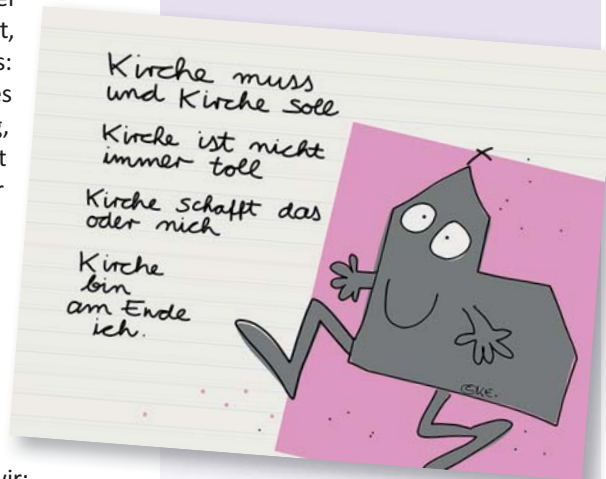 t,
s:
es
g,
t
r
Kirche muss
und Kirche soll
Kirche ist nicht
immer toll
Kirche schafft das
oder nich
Kirche
bin
am Ende
ich.
wir: